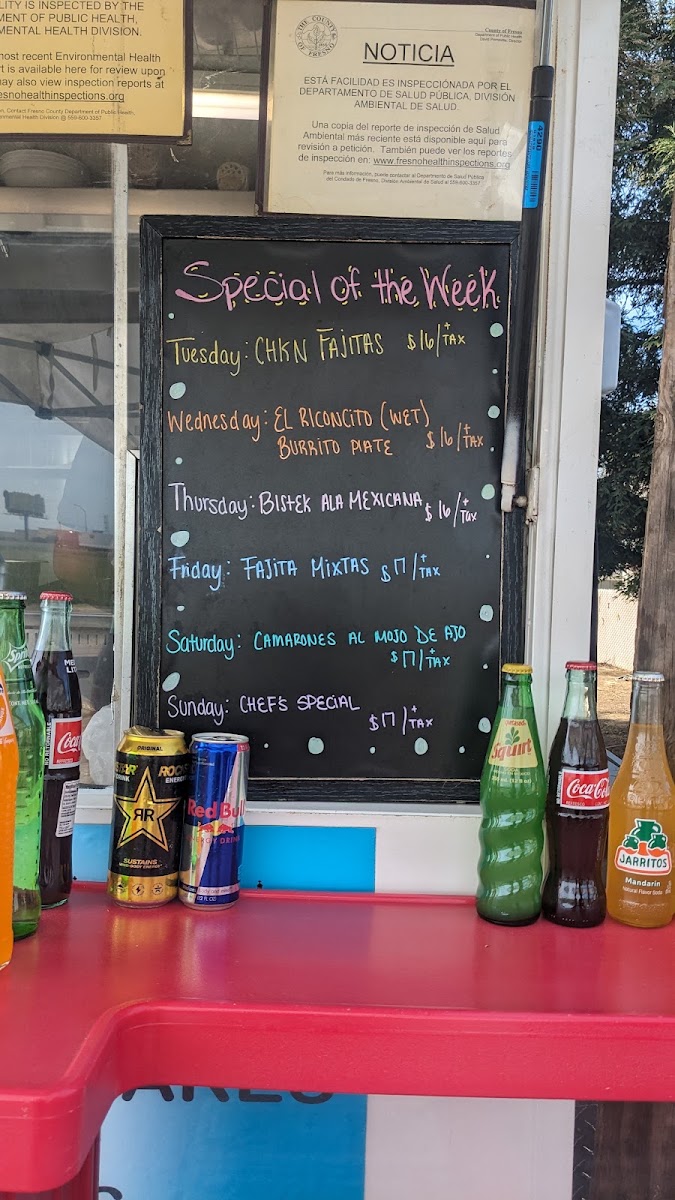 LITY IS INSPECTED BY THE
MENT OF PUBLIC HEALTH,
MENTAL HEALTH DIVISION.
most recent Environmental Health
rt is available here for review upon
may also view inspection reports at
esnohealthinspections.org
on, Contact Fresno County Department of Public Health,
nmental Health Division @ 559-600-3357
THE COUNTY
OF FRESNO
County of Fresno
Department of Public Health
NOTICIA
ESTÁ FACILIDAD ES INSPECCIÓNADA POR EL
DEPARTAMENTO DE SALUD PÚBLICA, DIVISIÓN
AMBIENTAL DE SALUD.
Una cópia del reporte de inspección de Salud
Ambiental más reciente está disponible aquí para
revisión a petición. También puede ver los reportes
de inspección en: www.fresnohealthinspections.org
Para más información, puede contactar al Departamento de Salud Pública
del Condado de Fresno, División Ambiental de Salud al 559-600-3357
4290
Special of the Week
Tuesday: CHKN FAJITAS $16/+TAX
Wednesday: EL RICONCITO (WET)
BURRITO PLATE $16/+TAX
Thursday: BISTEK ALA MEXICANA $16/+TAX
Friday: FAJITA MIXTAS $17/+TAX
Saturday: CAMARONES AL MOJO DE AJO
$17/+TAX
Sunday: CHEF'S SPECIAL
$17/+TAX
Sprite
Coca
ORIGINAL
ROCK
ENERGY
DRINK
RR
SUSTAINS
Red Bull
ENERGY DRINK
Squirt
Coca-Cola
JARRITOS
Mandarin
Natural Flavor Soda
ARES